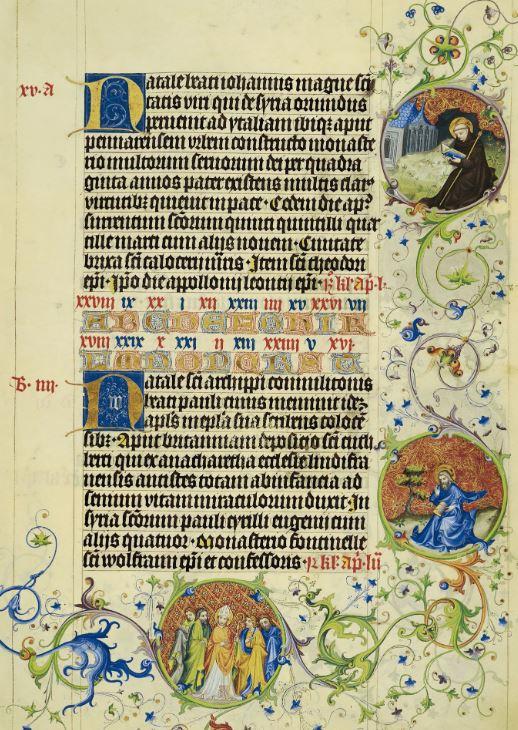 xv · A
Natale beati iohannis magne sci
tatis viri qui de syria oriundus
pervenit ad ytaliam ibiqz aput
pennarensem urbem constructo monaste
rio multorum servorum dei per quadra
ginta annos pater existens multis clare
virtutibz quievit in pace · Eodem die apd
surrentum scorum quinti quintilli quar
tille marci cum alijs novem · Civitate
brixa sci caloceri miris · Item sci theodori
epi · Ipo die apollonij leontij epi · R kl ap l
xxviii ix xx i xii xxiii iiii xv xxvi vii
A B C D E F G H I K
xviii xxix x xxi ii xiii xxiiii v xvi
B · iiii ·
Natale sci archippi commilitonis
beati pauli cuius meminit idez
apls in epla sua scribens colocen
sibz · Aput britanniam deposicio sci cuth
berti qui ex anachoreta ecclesie lindisfar
nensis antistes totam ab infancia ad
senium vitam miraculorum duxit · In
syria scorum pauli cyrilli eugenij cum
alijs quatuor · Monasterio fontinelle
sci wolframi epi et confessoris · R kl ap lu